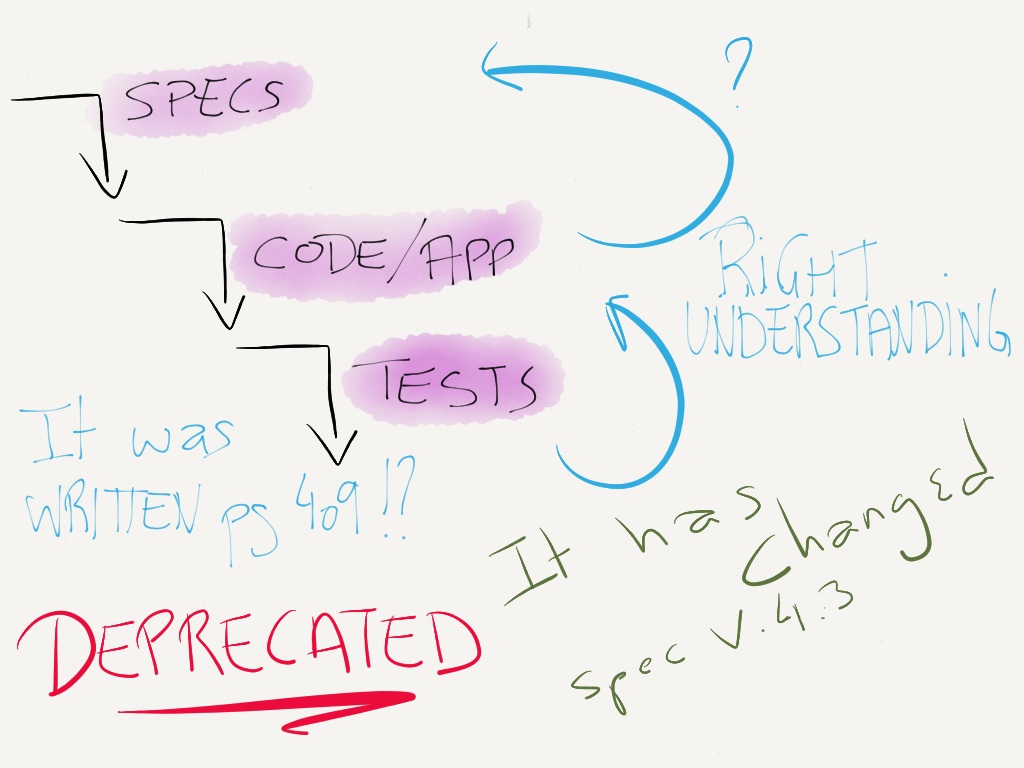 SPECS
?
CODE/APP
RIGHT
UNDERSTANDING
TESTS
It was
WRITTEN pg 409 !?
It has
changed
spec v.4.3
DEPRECATED